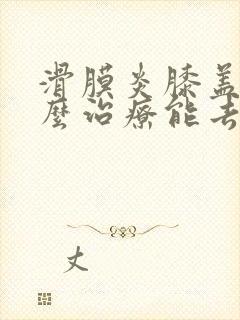 滑膜炎膝盖
麼治療能去
丈